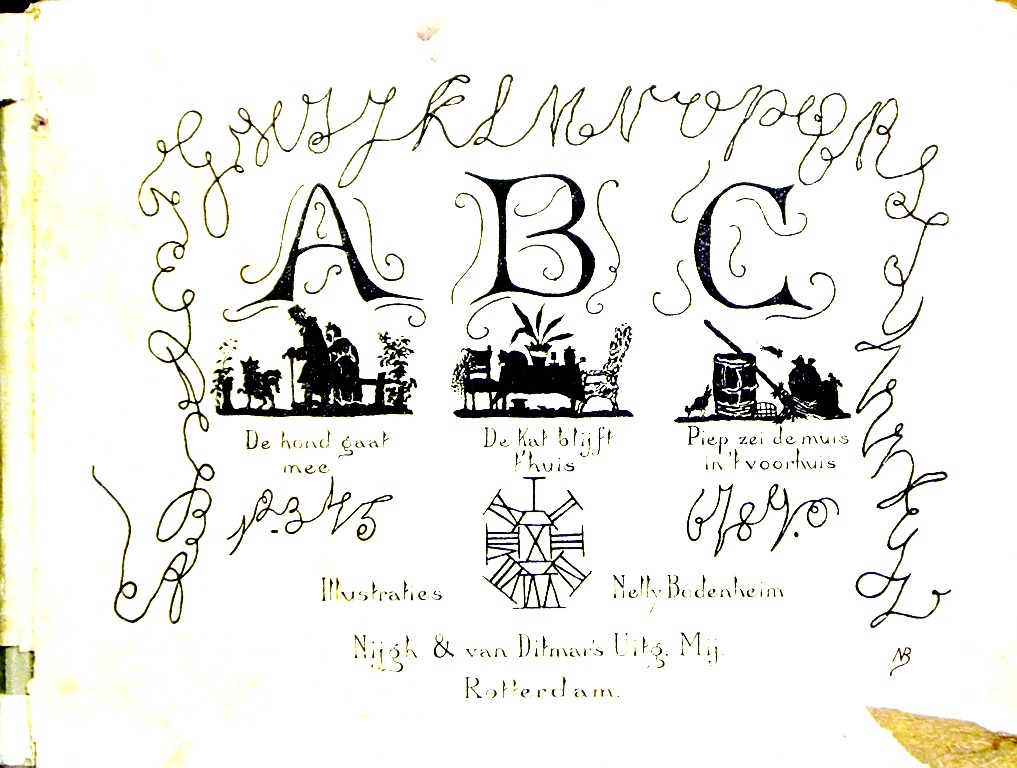 A B C D E F G H I J K L M N O P Q R S T U V W X Y Z
A B C
De hond gaat
mee
De Kat blijft
t'huis
Piep zei de muis
in 't voorhuis
1 2 3 4 5
6 7 8 9 0
I II III IV V VI VII VIII IX X XI XII
Illustraties Nelly Bodenheim
Nijgh & van Ditmar's Uitg. Mij.
Rotterdam.
NB